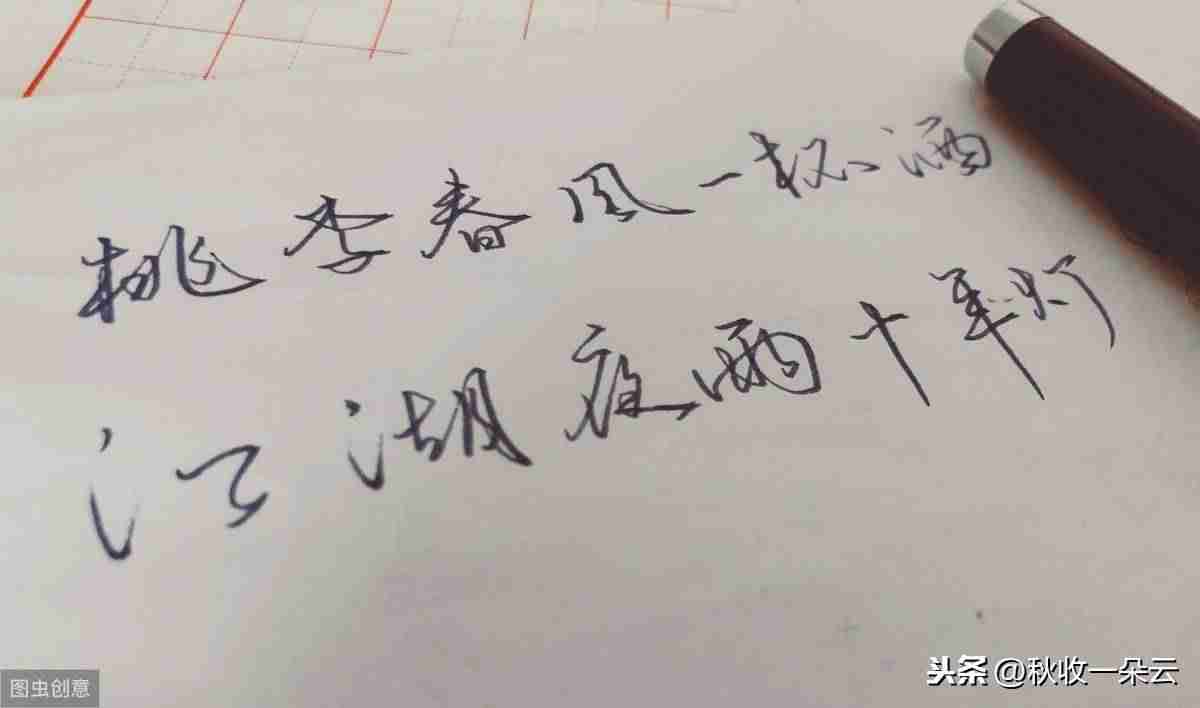 桃李春风一杯酒
江湖夜雨十年灯
图虫创意
头条@秋收一朵云